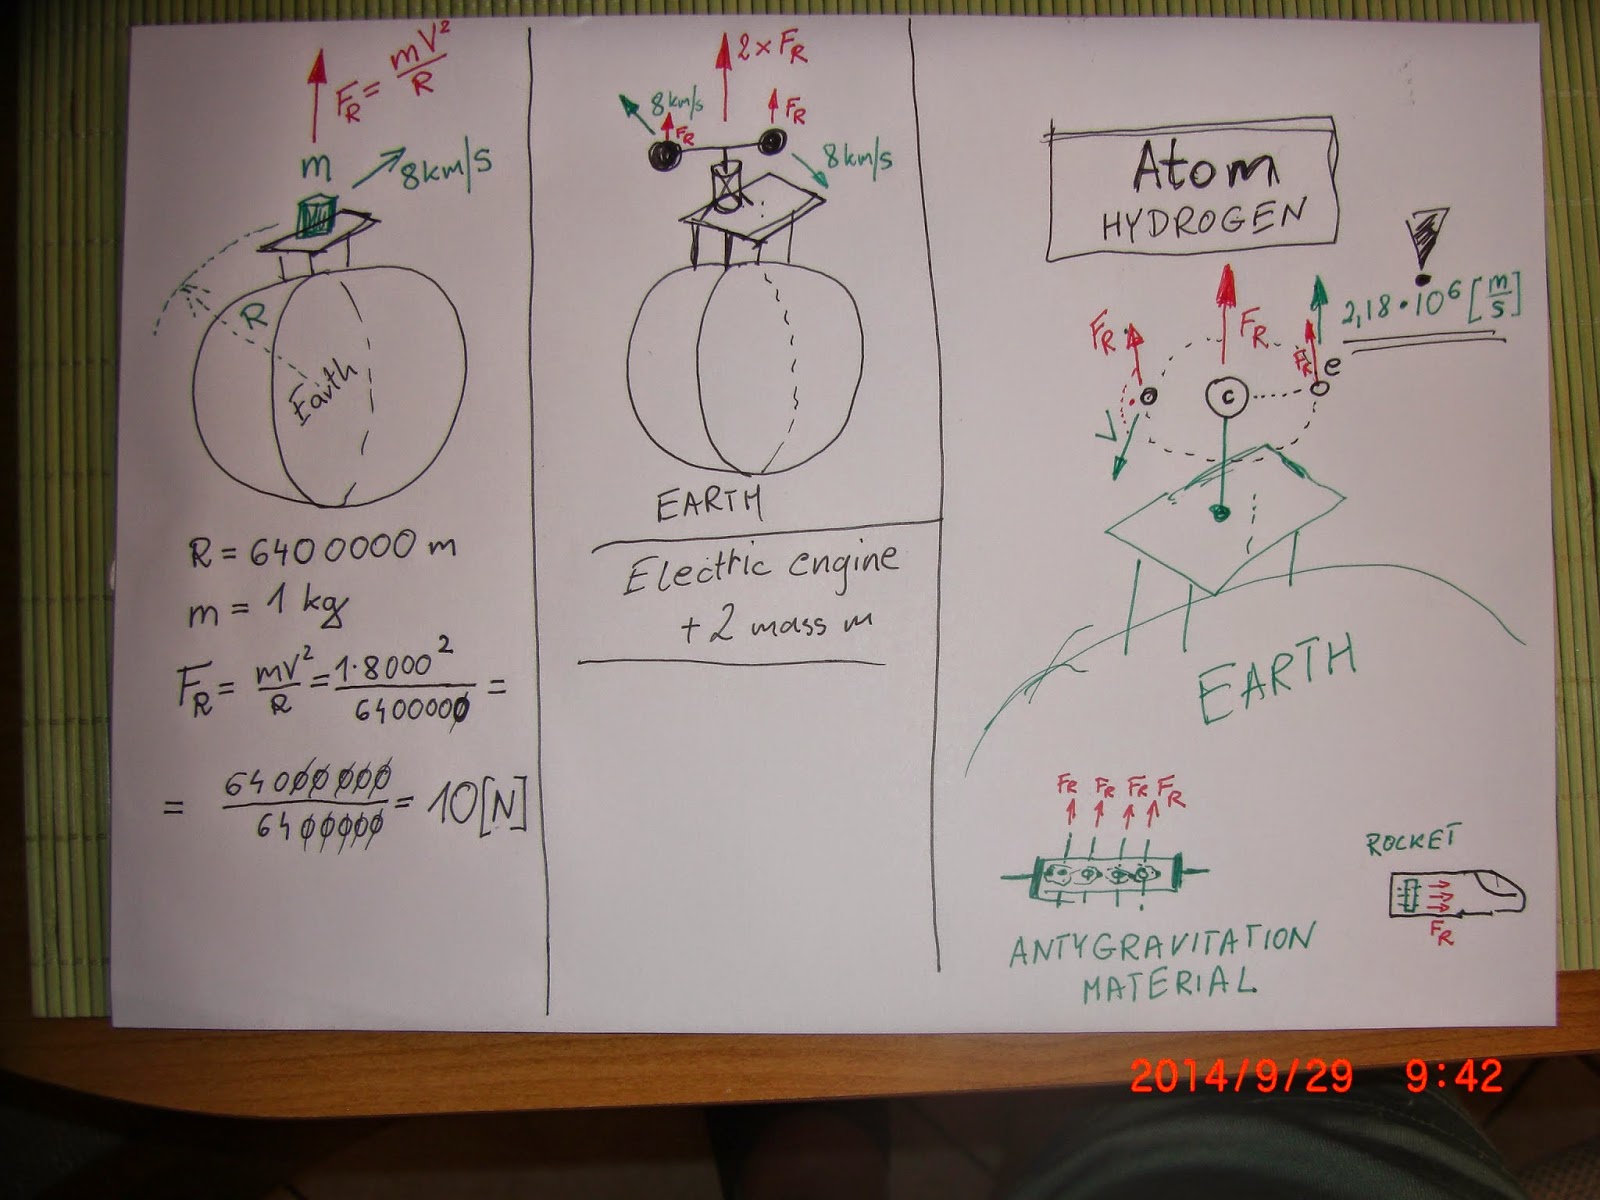 F_R = mV²/R
m
8km/s
R
Earth
R = 6400000 m
m = 1 kg
F_R = mV²/R = 1·8000²/6400000 =
= 64000000/6400000 = 10[N]
2×F_R
8km/s
F_R
F_R
8km/s
EARTH
Electric engine
+ 2 mass m
Atom
HYDROGEN
2,18·10⁶ [m/s]
F_R
F_R
F_R
e
c
V
EARTH
F_R F_R F_R F_R
ANTYGRAVITATION
MATERIAL
ROCKET
F_R
2014/9/29 9:42